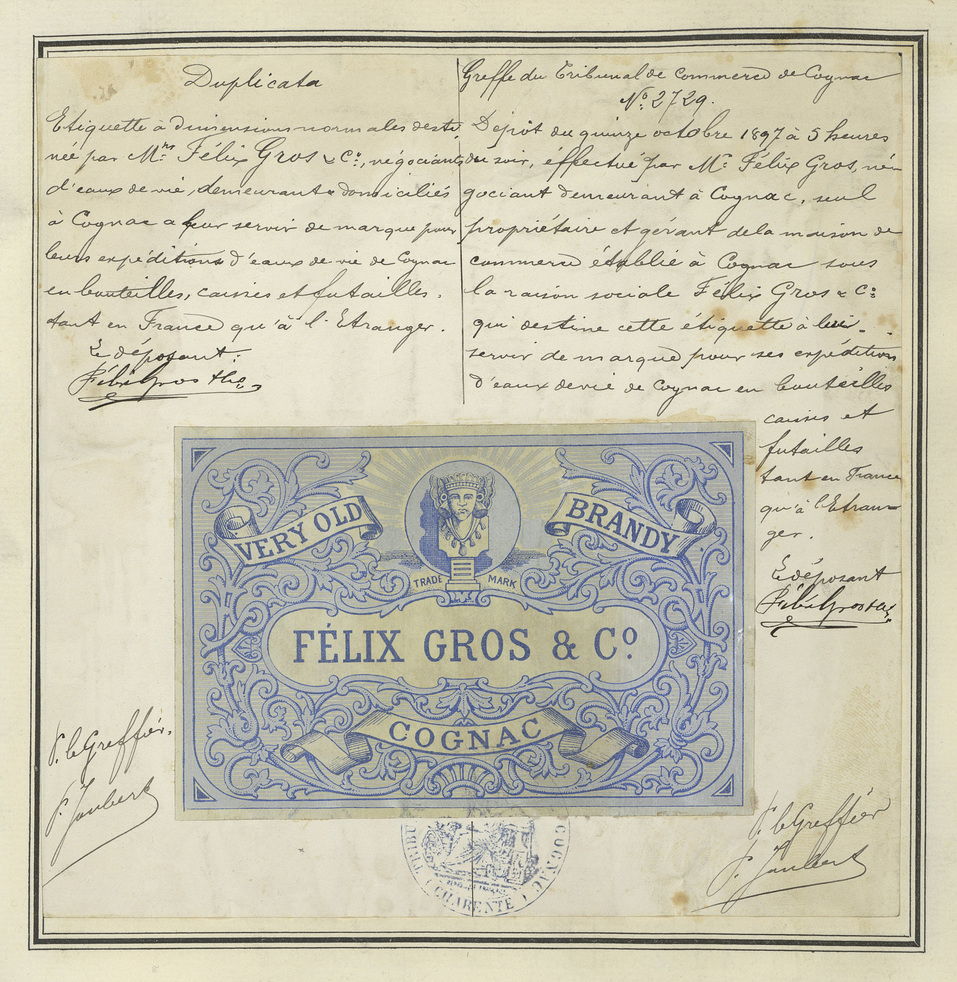 Duplicata
Etiquette à dimensions normales desti
née par M.rs Félix Gros & Cº, négociants
d'eaux de vie, demeurant & domiciliés
à Cognac a leur servir de marque pour
leurs expéditions d'eaux de vie de Cognac
en bouteilles, caisses et futailles.
tant en France qu'à l'Etranger.
Le déposant:
Félix Gros & Cie
Greffe du Tribunal de Commerce de Cognac
Nº 2729.
Dépôt du quinze octobre 1897 à 5 heures
du soir, effectué par Mr Félix Gros, né
gociant demeurant à Cognac, seul
propriétaire et gérant de la maison de
commerce établie à Cognac sous
la raison sociale Félix Gros & Cº
qui destine cette étiquette à lui
servir de marque pour ses expéditions
d'eaux de vie de Cognac en bouteilles
caisses et
futailles
tant en France
qu'à l'Etran-
ger.
Le déposant
Félix Gros & Cie
VERY OLD
BRANDY
TRADE MARK
FÉLIX GROS & Cº
COGNAC
P. le Greffier.
P. Joubert
TRIBU
COGNAC
(CHARENTE)
P. le Greffier
P. Joubert